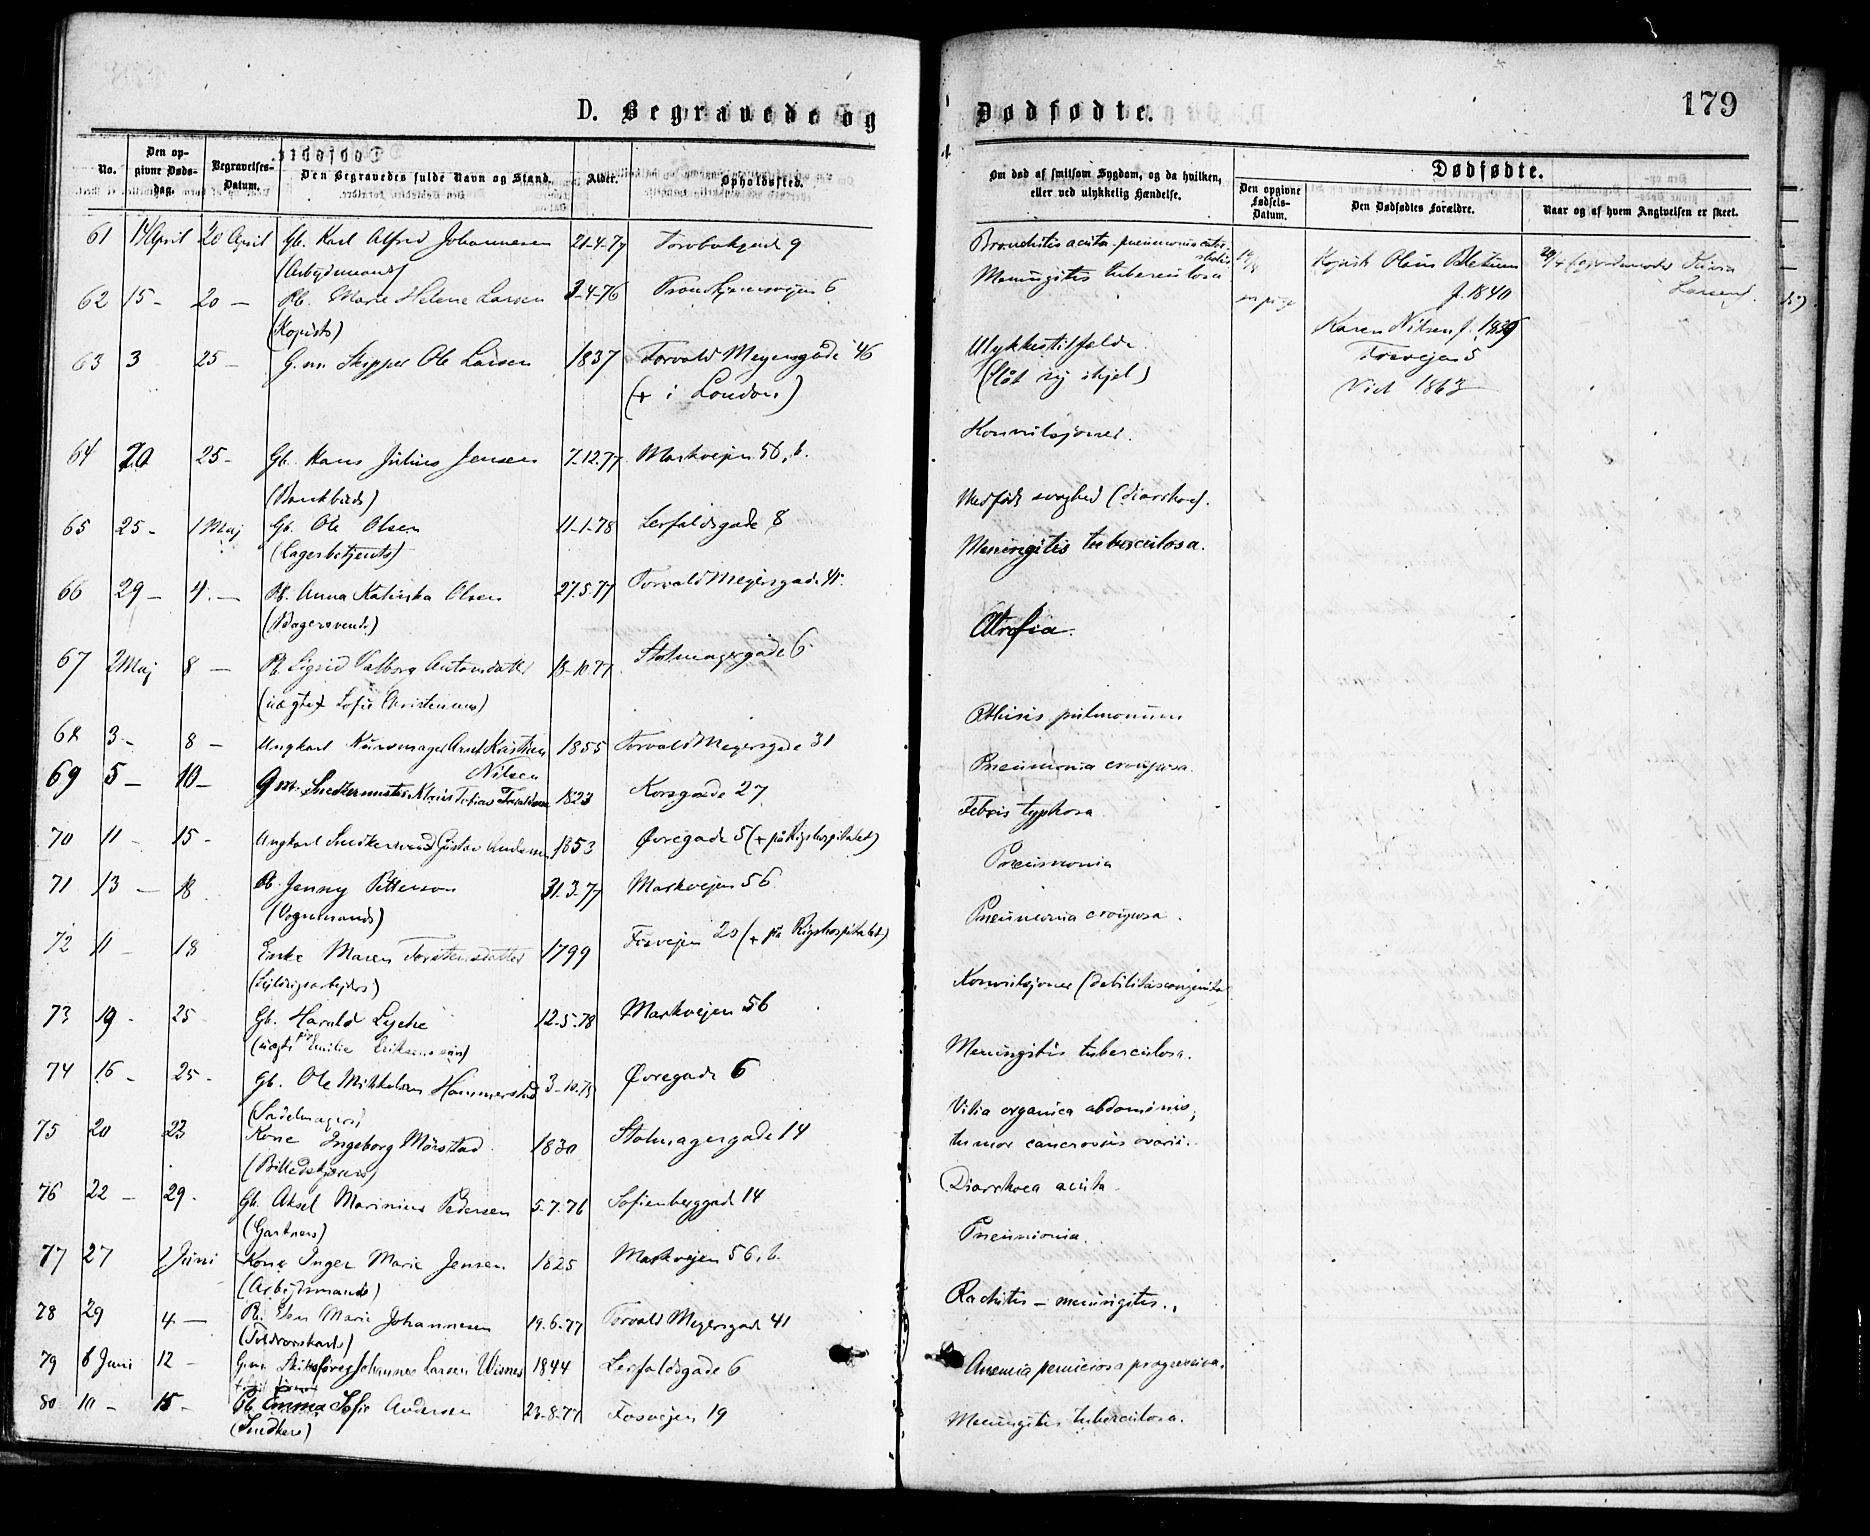 D. Begravede og
Dødfødte.
179
No.
Den opgivne Dødsdag.
Begravelses-Datum.
Den Begravedes fulde Navn og Stand.
Alder.
Opholdssted.
Om død af smitsom Sygdom, og da hvilken, eller ved ulykkelig Hændelse.
Dødfødte.
Den opgivne Fødsels-Datum.
Den Dødfødtes Forældre.
Naar og af hvem Angivelsen er skeet.
61 14 April 20 April Gb. Karl Alfred Johannesen 21-4-77 9
(Arbejdsmands)
62 15 - 20 - Pb. Marie Helene Larsen 3-4-76 6
(Kopists)
63 3 25 - G.m. Skipper Ole Larsen 1837 Torvald Meyersgade 46
(+ i London)
64 20 25 - Gb. Hans Julius Jensen 7-12-77 Markvejen 56, b.
65 25 - 1 Maj Gb. Ole Olsen 11-1-78 Lerfaldsgade 8
(Lagerbetjents)
66 29 - 4 - Pb. Anna Katinka Olsen 27.5.77 Torvald Meyersgade 41.
(Bagersvends)
67 2 Maj 8 - Pb. Sigrid Valborg Antonsdatter 13-10.77 Stolmagergade 6
(uægte Sofie)
68 3 - 8 - Ungkarl 1855 Torvald Meyersgade 31
Nilsen
69 5 - 10 - G.m. Snedkermester 1823 Korsgade 27
70 11 - 15 - Ungkarl Snedkersvend Gustav Andersen 1853 Øvregade 5 (+ på Rigshospitalet)
71 13 - 18 Pb. Jenny Petterson 31.3.77 Markvejen 56
(Vognmands)
72 11 - 18 Enke Maren Torstensdatter 1799 Fosvejen 20 (+ på Rigshospitalet)
73 19 - 25 Gb. Harald Lyche 12-5-78 Markvejen 56
(uægte Emilie)
74 16 - 25 - Gb. Ole Mikkelsen Hammerstad 3-10.75 Øvregade 6
(Sadelmagers)
75 20 23 Kone Ingeborg Mørstad 1830 Stolmagergade 14
76 22 - 29 - Gb. Aksel Marinius Pedersen 5-7.76 Sofienberggade 14
(Gartners)
77 27 1 Juni Kone Inger Marie Jensen 1825 Markvejen 56, b.
(Arbejdsmands)
78 29 4 - Pb. Marie Johannesen 19.6.77 Torvald Meyersgade 41
79 6 Juni 12 - G.m. Johannes Larsen 1844 Lerfaldsgade 6
80 10 - 15 - Pb. Emma Sofie Andersen 23-8-77 Fosvejen 19
(Snedkers)
Bronchitis acuta - pneumonia
Meningitis tuberculosa
Ulykkestilfælde
(Slåt sig ihjel)
Konvulsjoner.
Medfødt svaghed (diarrhoe).
Meningitis tuberculosa.
Atrofia.
Pthisis pulmonum
Pneumonia crouposa.
Febris typhosa.
Pneumonia
Pneumonia crouposa.
Konvulsjoner (debilitas congenita)
Meningitis tuberculosa.
Vitia organica abdominis,
tumor cancrosus ovarii.
Diarrhoea acuta.
Pneumonia.
Rachitis - meningitis.
Anemia perniciosa progressiva.
Meningitis tuberculosa.
Kopist Olaus
f. 1840
Karen Nilsen f. 1839
Fosvejen 5
Viet 1863
Larsen